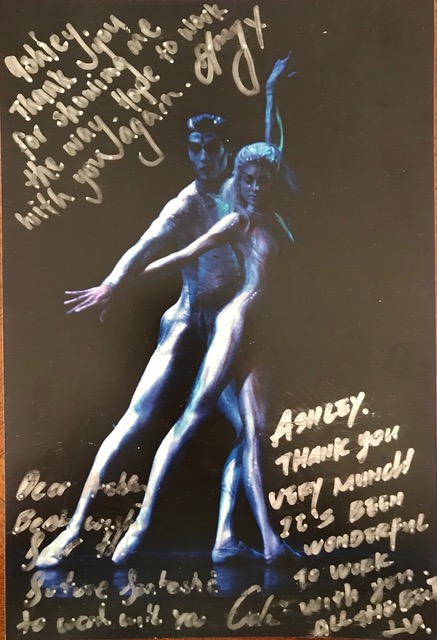 Ashley.
Thank you
for showing me
the way. Hope to work
with you again.
Dear Ashley
Best wishes
for the
future fantastic
to work with you
ASHLEY.
THANK YOU
VERY MUNCH
IT'S BEEN
WONDERFUL
TO WORK
WITH YOU.
ALL THE BEST